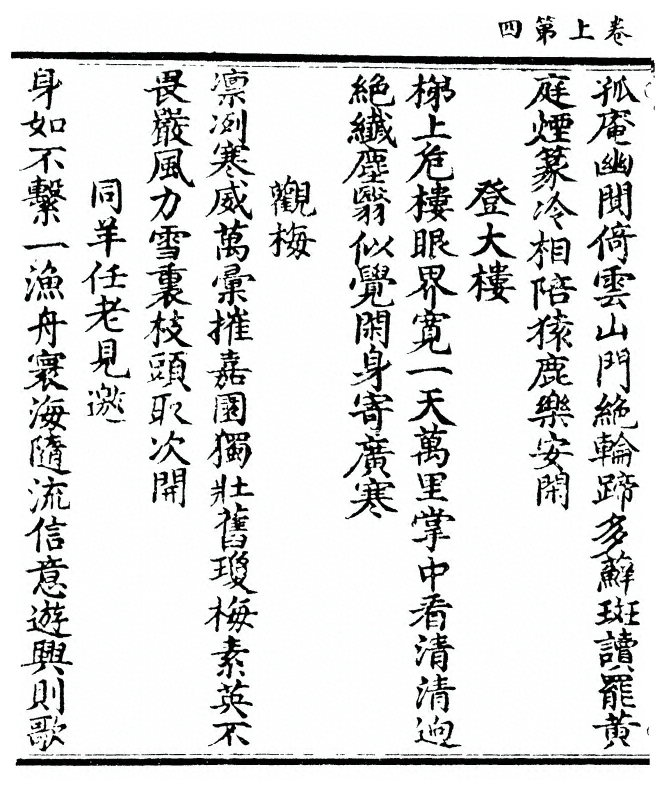 卷上第四
孤庵幽閴倚雲山門絶輪蹄多蘚斑讀罷黄
庭煙篆冷相陪猿鹿樂安閑
登大樓
梯上危樓眼界寬一天萬里掌中看清清迥
絶纎塵翳似覺閑身寄廣寒
觀梅
凛冽寒威萬彙摧嘉園獨壯舊瓊梅素英不
畏嚴風力雪裏枝頭取次開
同羊任老見邀
身如不繫一漁舟寰海隨流信意遊興則歌